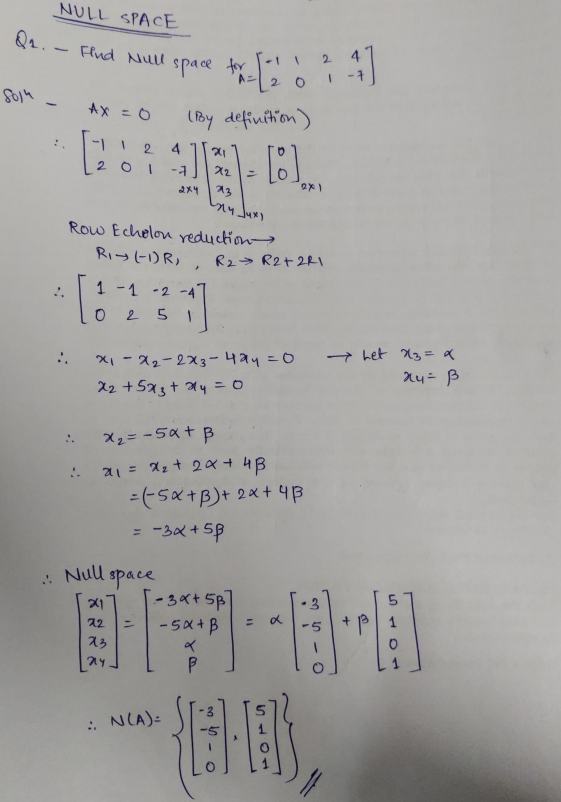 NULL SPACE
Q1. - Find Null space for A = [-1 1 2 4
2 0 1 -7]
Soln - AX = 0 (By definition)
∴ [-1 1 2 4
2 0 1 -7] 2x4 [x1
x2
x3
x4] 4x1 = [0
0] 2x1
Row Echelon reduction →
R1 → (-1)R1 , R2 → R2 + 2R1
∴ [1 -1 -2 -4
0 2 5 1]
∴ x1 - x2 - 2x3 - 4x4 = 0 → Let x3 = α
x2 + 5x3 + x4 = 0 x4 = β
∴ x2 = -5α + β
∴ x1 = x2 + 2α + 4β
= (-5α + β) + 2α + 4β
= -3α + 5β
∴ Null space
[x1
x2
x3
x4] = [-3α + 5β
-5α + β
α
β] = α [-3
-5
1
0] + β [5
1
0
1]
∴ N(A) = { [-3
-5
1
0] , [5
1
0
1] }